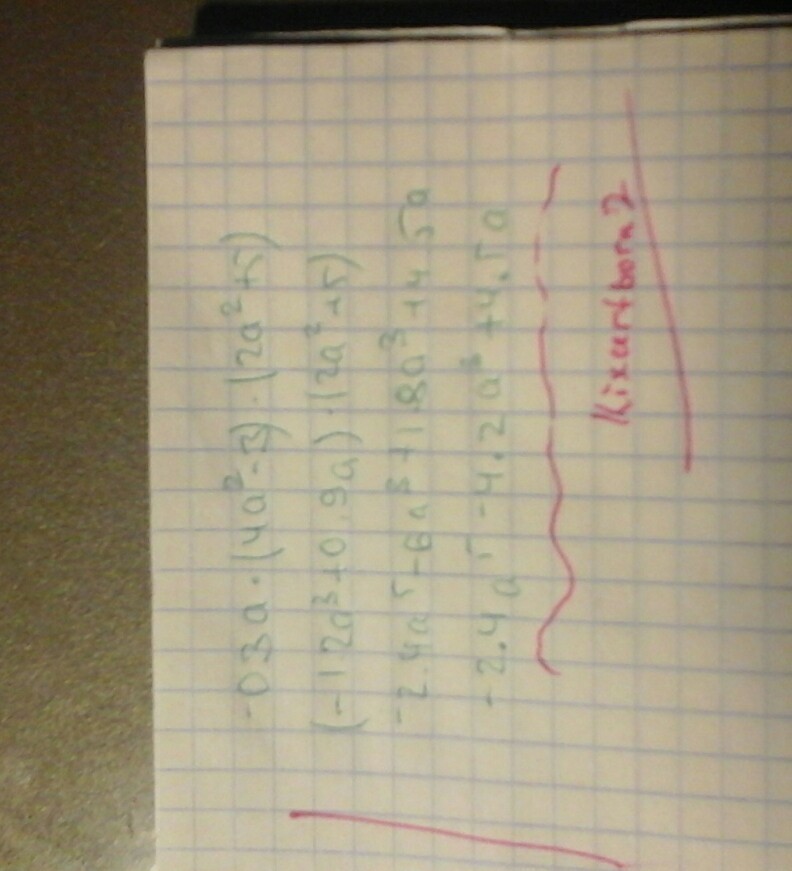 -0.3a·(4a²-3)·(2a²+5)
(-1.2a³+0.9a)·(2a²+5)
-2.4a⁵-6a³+1.8a³+4.5a
-2.4a⁵-4.2a³+4.5a